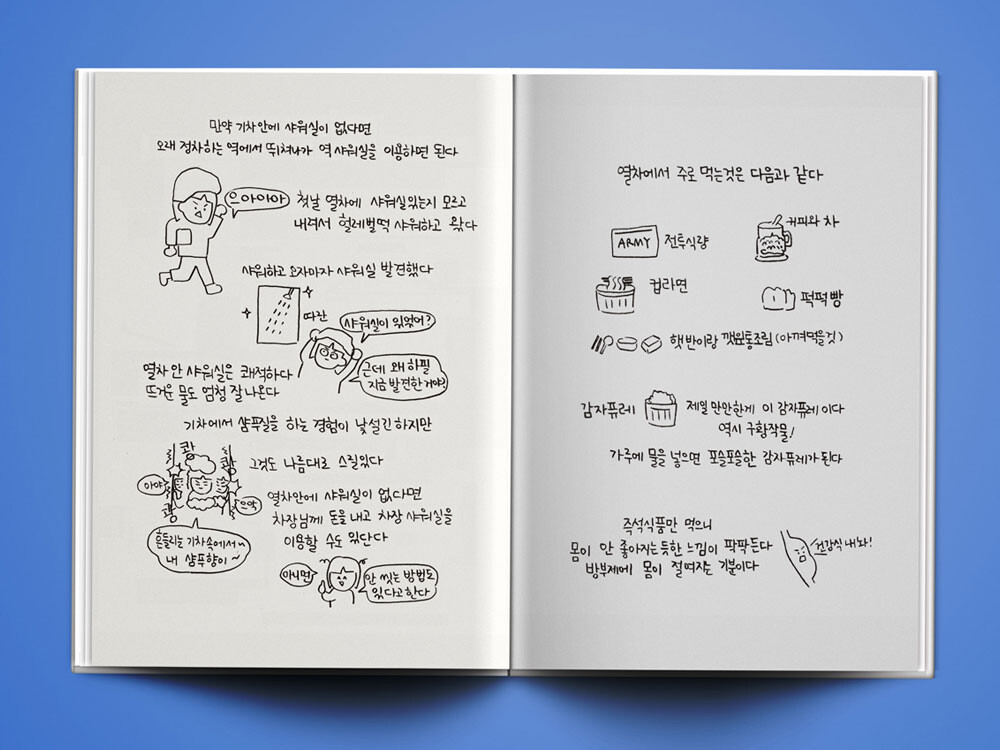 만약 기차안에 샤워실이 없다면
오래 정차하는 역에서 뛰쳐나가 역 샤워실을 이용하면 된다
으아아아
첫날 열차에 샤워실있는지 모르고
내려서 헐레벌떡 샤워하고 왔다
샤워하고 오자마자 샤워실 발견했다
따란
샤워실이 있었어?
근데 왜 하필
지금 발견한 거야?
열차 안 샤워실은 쾌적하다
뜨거운 물도 엄청 잘 나온다
기차에서 샴푸질을 하는 경험이 낯설긴 하지만
쾅
쾅
쾅
아야
으악
그것도 나름대로 스릴있다
흔들리는 기차속에서~
내 샴푸향이~
열차안에 샤워실이 없다면
차장님께 돈을 내고 차장 샤워실을
이용할 수도 있단다
아니면
안 씻는 방법도
있다고한다
열차에서 주로 먹는것은 다음과 같다
ARMY
전투식량
커피와 차
컵라면
퍽퍽빵
햇반이랑 깻잎통조림 (아껴먹을것)
감자퓨레
제일 만만한게 이 감자퓨레 이다
역시 구황작물!
가루에 물을 넣으면 포슬포슬한 감자퓨레가 된다
즉석식품만 먹으니
몸이 안 좋아지는듯한 느낌이 팍팍든다
방부제에 몸이 절여지는 기분이다
건강식 내놔!